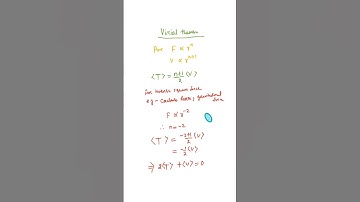 Virial theorem
For F ∝ rⁿ
V ∝ rⁿ⁺¹
⟨T⟩ = n+1/2 ⟨V⟩
for inverse square force
e.g - Coulomb force, gravitational force
F ∝ r⁻²
∴ n = -2
⟨T⟩ = -2+1/2 ⟨V⟩
= -1/2 ⟨V⟩
⇒ 2⟨T⟩ + ⟨V⟩ = 0